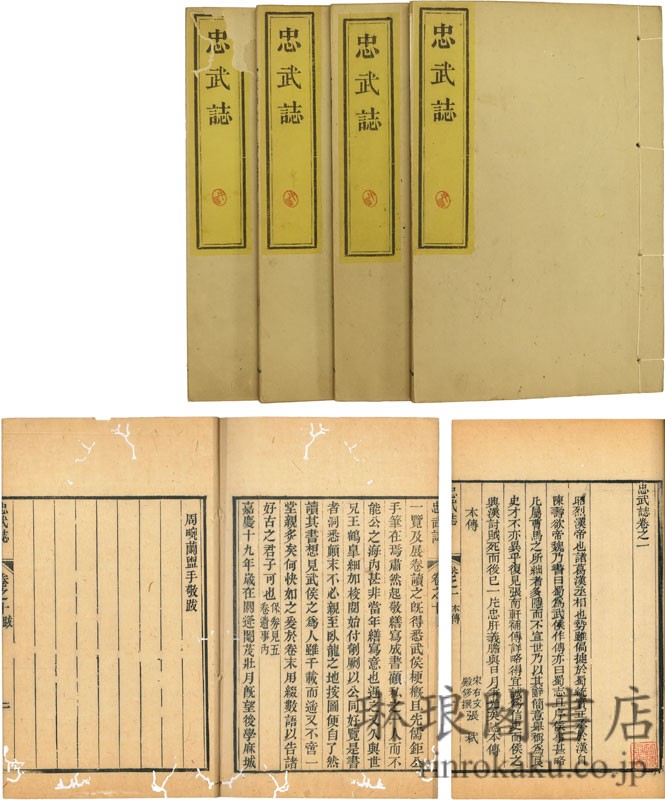 忠武誌
忠武誌
忠武誌
忠武誌
忠武誌卷之一
昭烈漢帝也諸葛漢丞相也勢雖偏據於蜀統實正於漢自
陳壽欲帝魏乃書曰蜀爲武侯作傳亦曰蜀志其序侯事甚略
凡屬曹馬之所絀者多隱而不宣世乃以其辭簡意舉稱爲良
史才不亦異乎復見張南軒補傳詳略得宜信史而侯之
興漢討賊死而後已一片忠肝義膽與日月爭光矣作本傳
本傳
宋右文殿修撰張栻
忠武誌 卷之一 本傳
忠武誌 卷之十
一覽及展卷讀之旣得悉武侯梗概且先儒鉅公
手筆在焉肅然起敬繕寫成書顧私之一人而不
能公之海内甚非當年繕寫意也遲之又久與世
兄王鶴皐細加校閱始付剞劂以公同好覽是書
者洞悉顛末不必親至臥龍之地按圖便自了然
讀其書想見武侯之爲人雖千載而遙又不啻一
堂親炙矣何快如之爰於卷末用綴數語以告諸
好古之君子可也 保參見五卷遺事内
嘉慶十九年歲在閼逢閹茂壯月旣望後學麻城
周畹蘭盥手敬跋
忠武誌 卷之十跋 二
琳琅閣書店
rinrokaku.co.jp